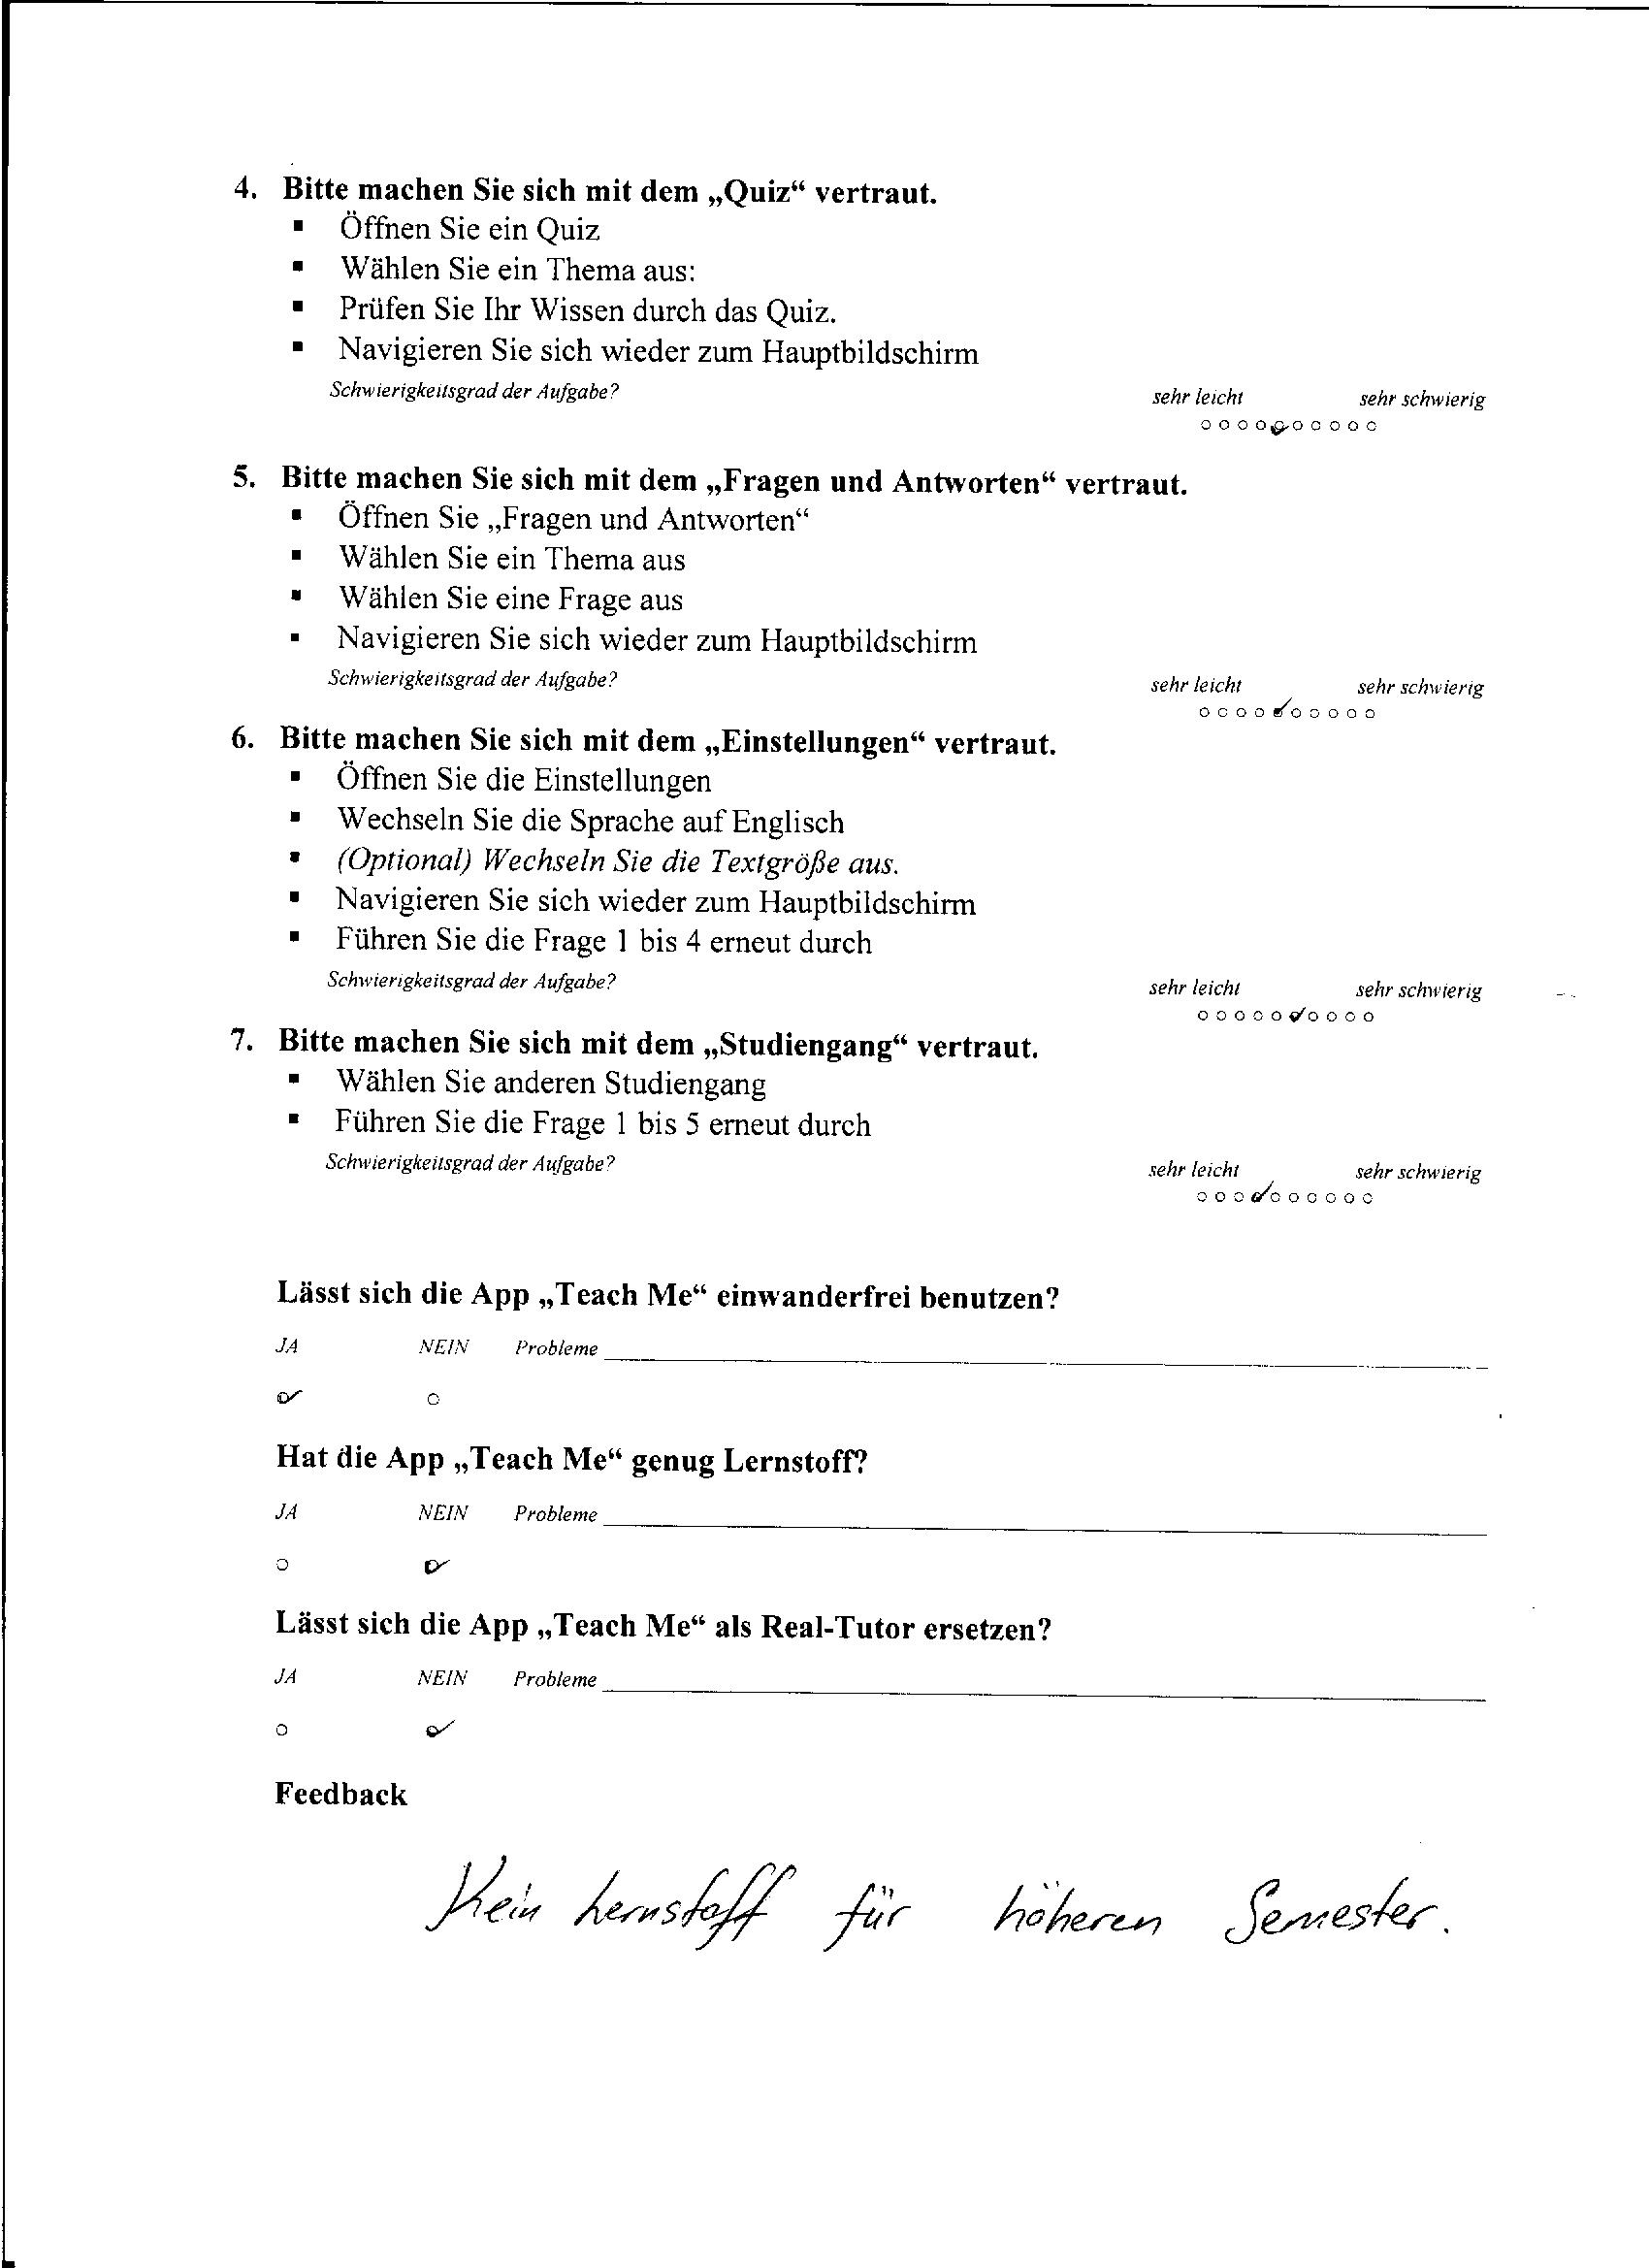 4. Bitte machen Sie sich mit dem „Quiz“ vertraut.
▪ Öffnen Sie ein Quiz
▪ Wählen Sie ein Thema aus:
▪ Prüfen Sie Ihr Wissen durch das Quiz.
▪ Navigieren Sie sich wieder zum Hauptbildschirm
Schwierigkeitsgrad der Aufgabe? sehr leicht sehr schwierig
5. Bitte machen Sie sich mit dem „Fragen und Antworten“ vertraut.
▪ Öffnen Sie „Fragen und Antworten“
▪ Wählen Sie ein Thema aus
▪ Wählen Sie eine Frage aus
▪ Navigieren Sie sich wieder zum Hauptbildschirm
Schwierigkeitsgrad der Aufgabe? sehr leicht sehr schwierig
6. Bitte machen Sie sich mit dem „Einstellungen“ vertraut.
▪ Öffnen Sie die Einstellungen
▪ Wechseln Sie die Sprache auf Englisch
▪ (Optional) Wechseln Sie die Textgröße aus.
▪ Navigieren Sie sich wieder zum Hauptbildschirm
▪ Führen Sie die Frage 1 bis 4 erneut durch
Schwierigkeitsgrad der Aufgabe? sehr leicht sehr schwierig
7. Bitte machen Sie sich mit dem „Studiengang“ vertraut.
▪ Wählen Sie anderen Studiengang
▪ Führen Sie die Frage 1 bis 5 erneut durch
Schwierigkeitsgrad der Aufgabe? sehr leicht sehr schwierig
Lässt sich die App „Teach Me“ einwanderfrei benutzen?
JA NEIN Probleme
Hat die App „Teach Me“ genug Lernstoff?
JA NEIN Probleme
Lässt sich die App „Teach Me“ als Real-Tutor ersetzen?
JA NEIN Probleme
Feedback
Kein Lernstoff für höheren Semester.